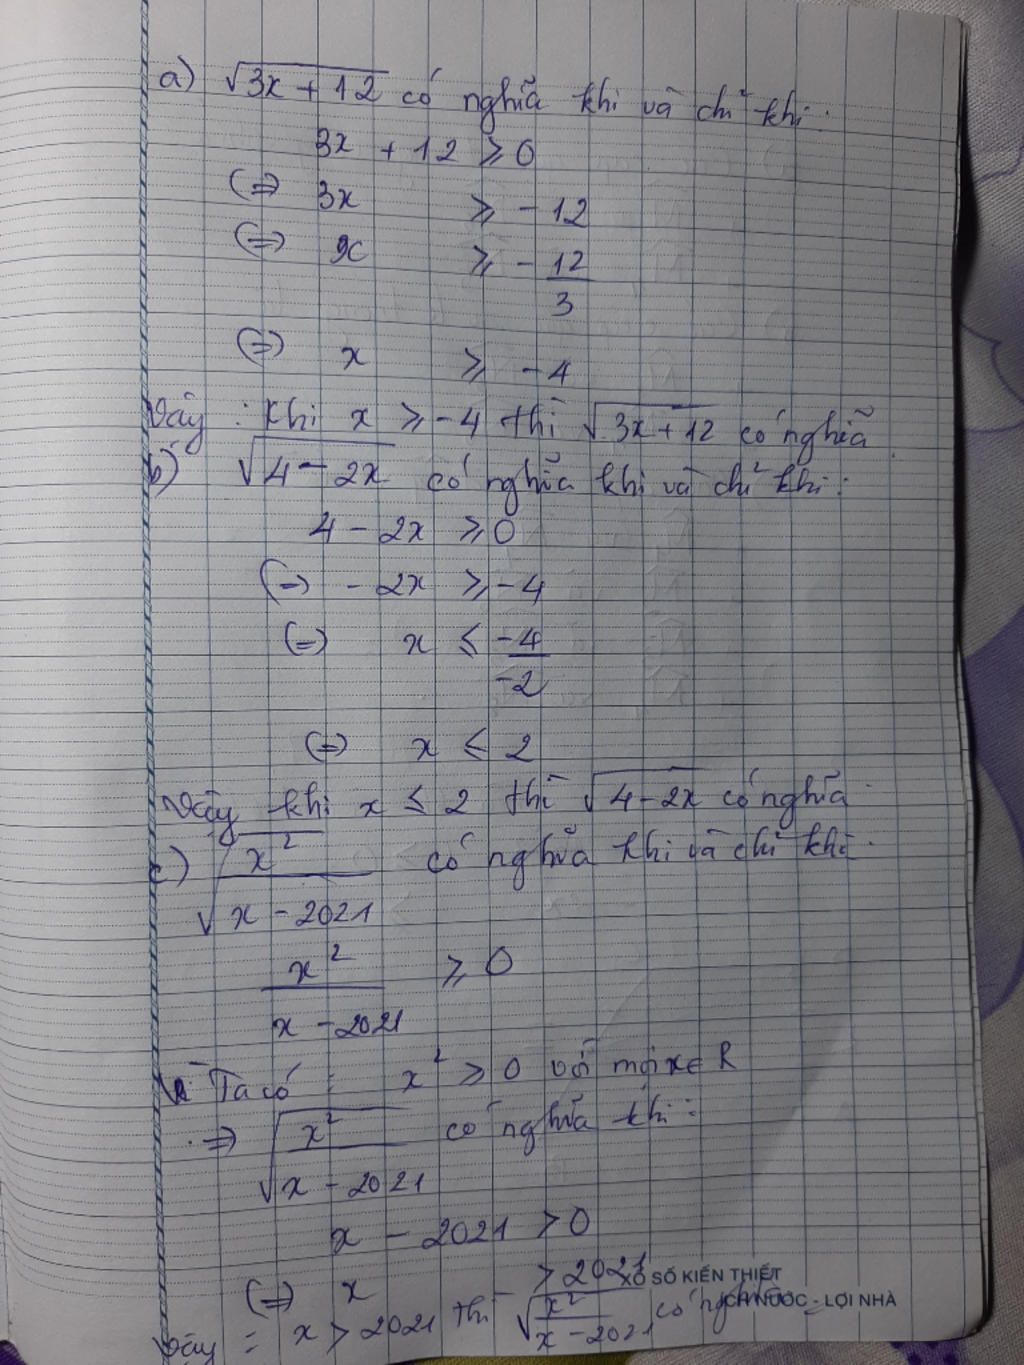 a) √3x + 12 có nghĩa khi và chỉ khi:
3x + 12 ≥ 0
(=) 3x ≥ - 12
(=) x ≥ - 12/3
(=) x ≥ - 4
Vậy : Khi x ≥ - 4 thì √3x + 12 có nghĩa
b) √4 - 2x có nghĩa khi và chỉ khi:
4 - 2x ≥ 0
(=) - 2x ≥ - 4
(=) x ≤ -4/-2
(=) x ≤ 2
Vậy khi x ≤ 2 thì √4 - 2x có nghĩa
c) √x²/x - 2021 có nghĩa khi và chỉ khi.
x²/x - 2021 ≥ 0
Ta có : x² ≥ 0 với mọi x ∈ R
=> √x²/x - 2021 có nghĩa khi:
x - 2021 > 0
(=) x > 2021
XỔ SỐ KIẾN THIẾT
ÍCH NƯỚC - LỢI NHÀ
Vậy : x > 2021 thì √x²/x - 2021 có nghĩa